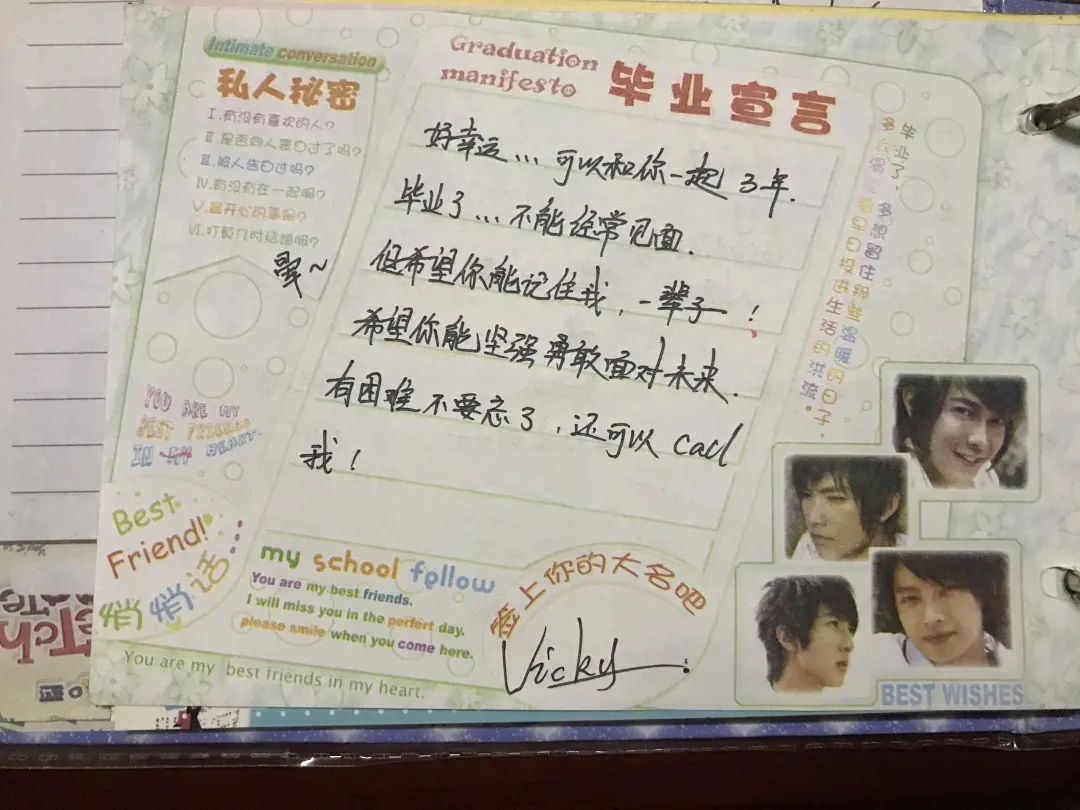 Intimate conversation
私人秘密
Ⅰ.有没有喜欢的人?
Ⅱ.是否向人表白过了吗?
Ⅲ.被人告白过吗?
Ⅳ.有没有在一起啊?
Ⅴ.最开心的事是?
Ⅵ.打算几时结婚啊?
晕~
YOU ARE MY
BEST FRIENDS
IN MY HEART.
Best
Friend!
悄悄话
Graduation
manifesto
毕业宣言
好幸运...可以和你一起3年.
毕业了...不能经常见面.
但希望你能记住我,一辈子!
希望你能坚强勇敢面对未来.
有困难不要忘了,还可以call
我!
my school follow
You are my best friends.
I will miss you in the perfert day.
please smile when you come here.
You are my best friends in my heart.
签上你的大名吧
Vicky
毕业了,
多想留住那些温暖的日子,
早日投进生活的洪流。
BEST WISHES